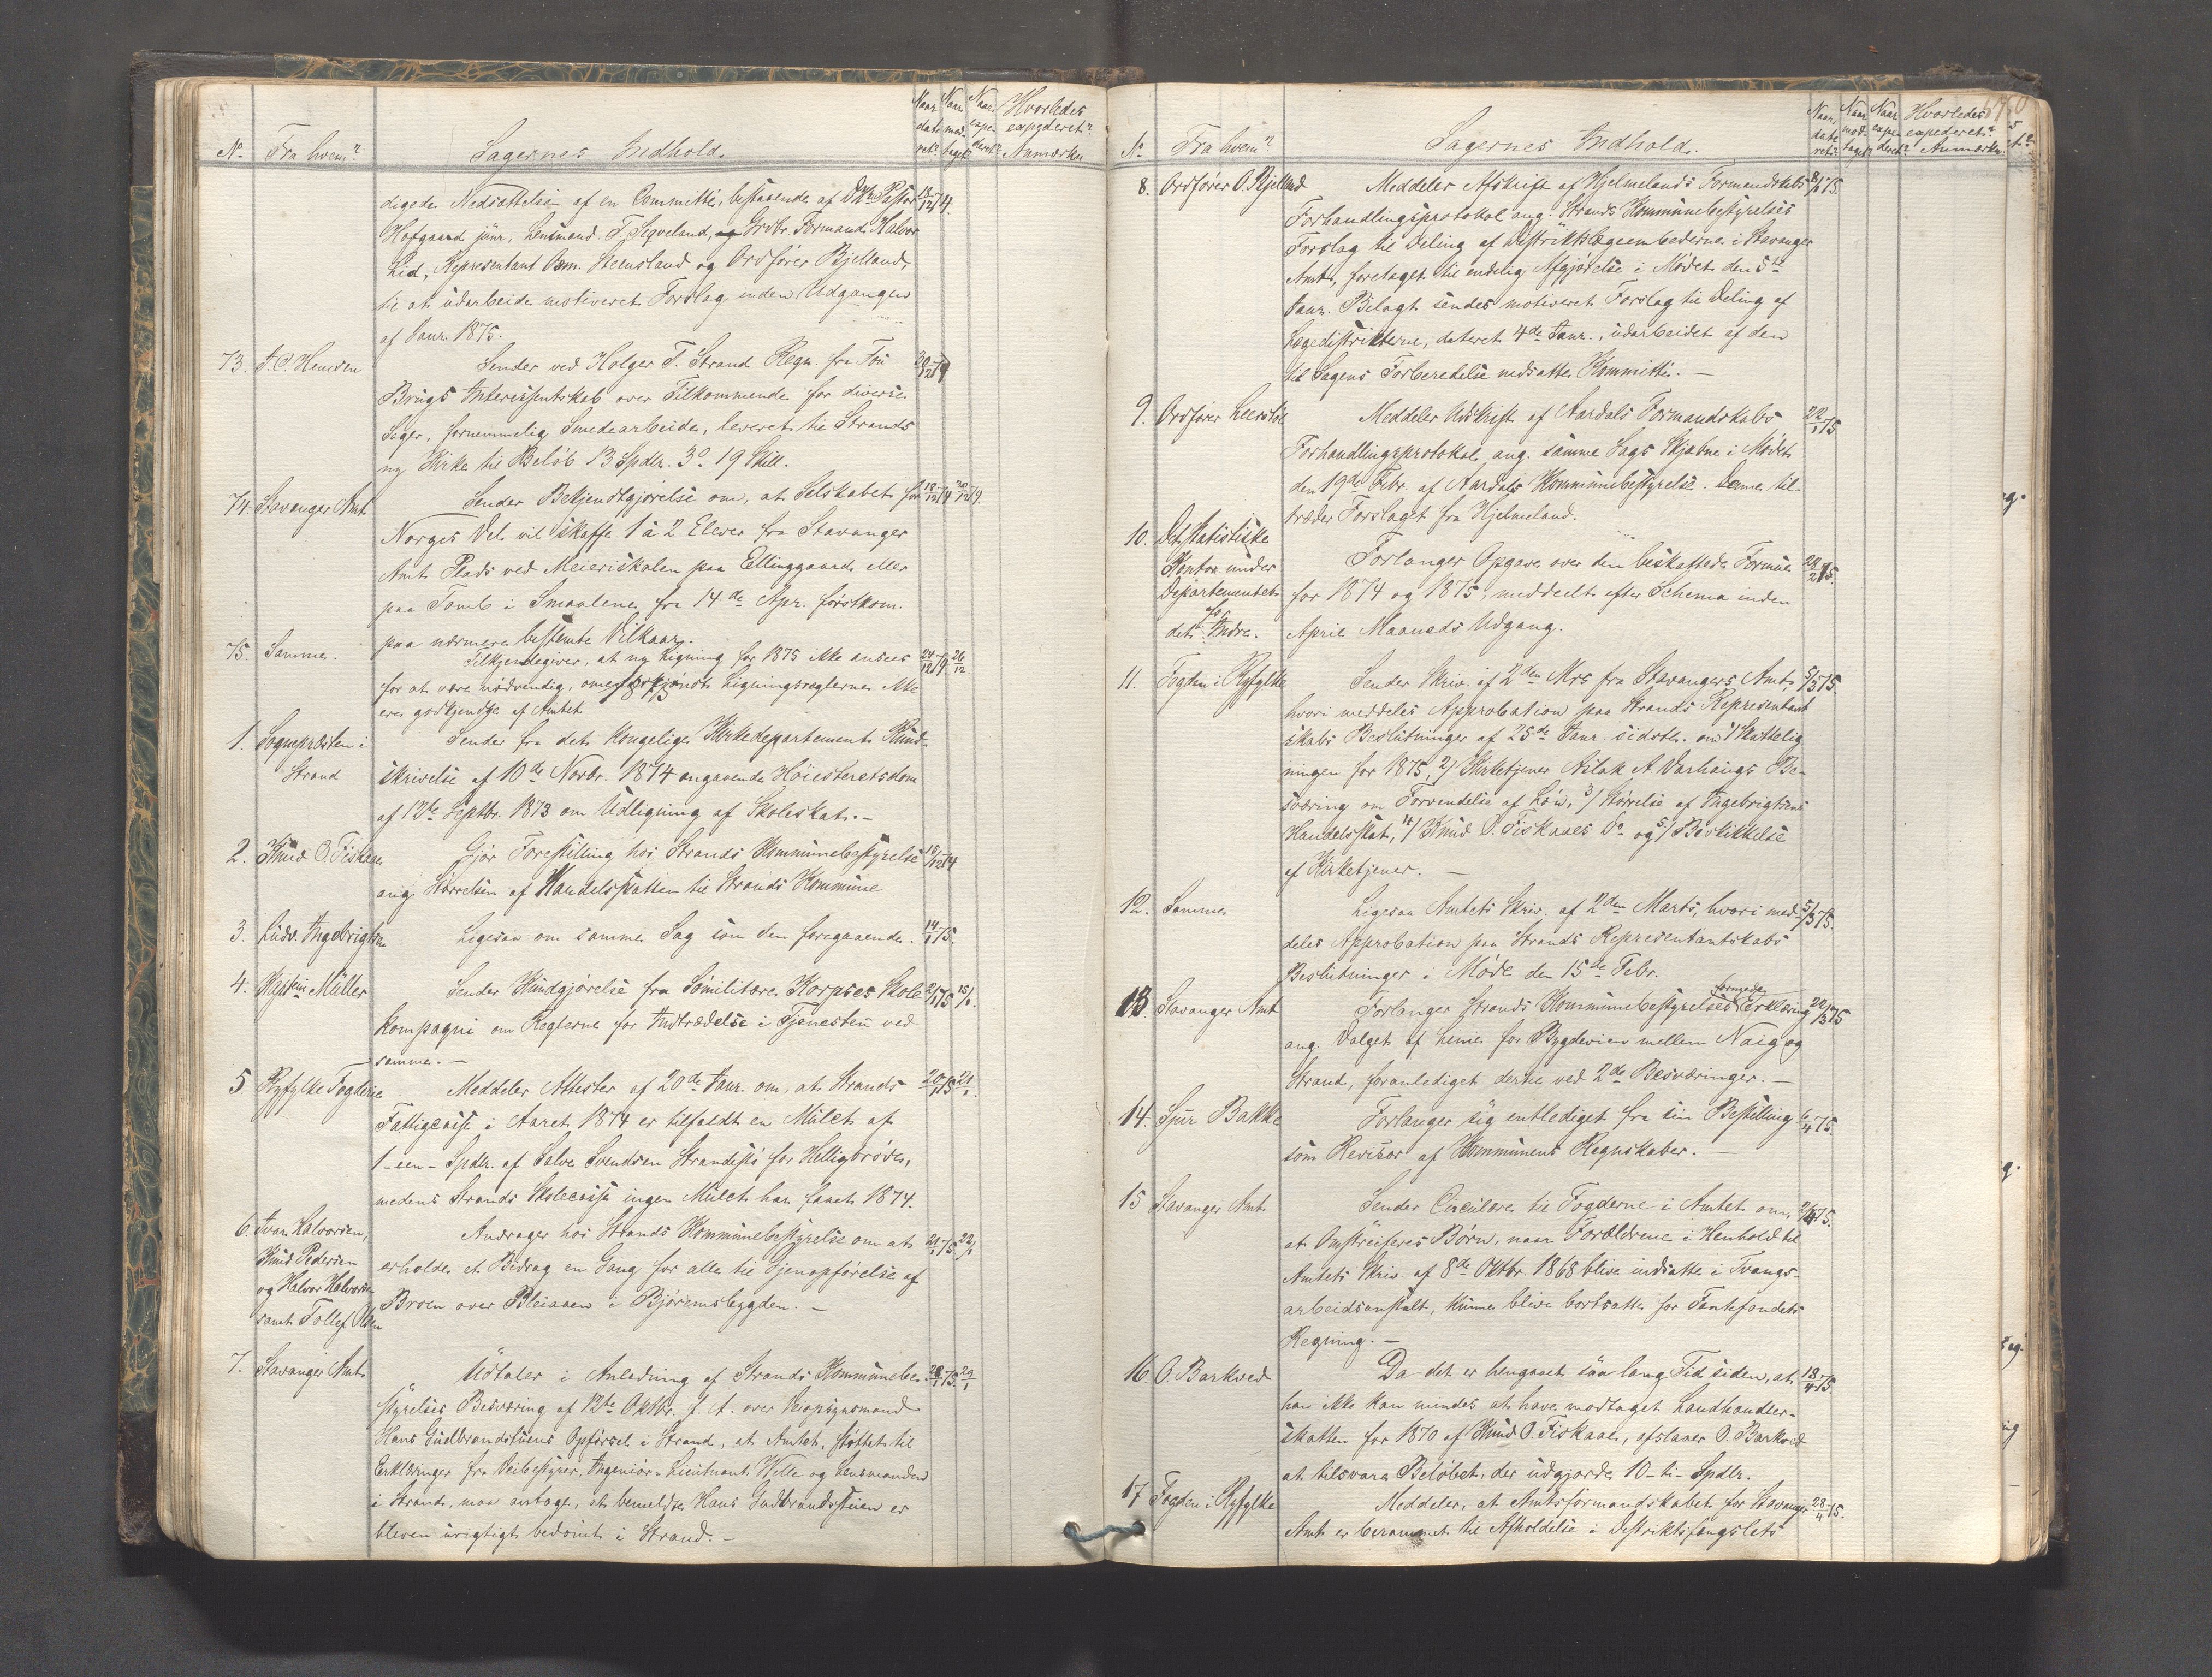 No. Fra hvem? Sagernes Indhold. Naar dateret? Naar modtaget? Naar expederet? Hvorledes expederet? Anmærkn.
digede Nedsættelsen af en Committé, bestaaende af DHr. Pastor 18/12 74.
Hofgaard junr., Lensmand T. Segveland, Grdbr. Formand Halvor
Lid, Representant Osm. Steensland og Ordfører Bjelland,
til at udarbeide motiveret Forslag inden Udgangen
af Janr. 1875.
73. Sender ved Holger T. Strand Regn. fra Tou
Brugs Interessentskab over Tilkommende for diverse
Sager, fornemmelig Smedearbeide, leveret til Strands
ny Kirke til Beløb 13 Spdlr. 3o. 19 Skill.
74. Stavanger Amt Sender Bekjendtgjørelse om, at Selskabet for 18/12 74
Norges Vel vil skaffe 1 à 2 Elever fra Stavanger
Amt Plads ved Meieriskolen paa Ellinggaard eller
paa Tomb i Smaalene fra 14de Apr. førstkom.
paa nærmere bestemte Vilkaar.
75. Samme. Tilkjendegiver, at ny Ligning for 1875 ikke ansees 24/12 74 26/12
for at være nødvendig, omendskjøndt Ligningsreglerne ikke
ere godkjendte af Amtet
1. Sognepræsten i Sender fra det Kongelige Kirkedepartement Rund-
Strand skrivelse af 10de Novbr. 1874 angaaende Høiesteretsdom
af 12te Septbr. 1873 om Udligning af Skoleskat. –
2. Knud O. Fiskaae Gjør Forestilling hos Strands Kommunebestyrelse 15/12 74
ang. Størrelsen af Handelsskatten til Strands Kommune
3. Ludv. Ingebrigtsen Ligesaa om samme Sag som den foregaaende. 14/1 75.
4. Kaptein Müller Sender Kundgjørelse fra Sømilitære Korpses Skole 2/1 75 15/1.
kompagni om Reglerne for Indtrædelse i Tjenesten ved
samme. –
5. Ryfylke Fogderie Meddeler Attester af 20de Janr. om, at Strands 20/1 75 21/1.
Fattigcasse i Aaret 1874 er tilfaldt en Mulct af
1 – een – Spdlr. af Salve Svendsen Strandesjø for Helligbrøde,
medens Strands Skolecasse ingen Mulct har faaet 1874.
6. Ivar Halvorsen, Andrager hos Strands Kommunebestyrelse om at 21/1 75 22/1
Knud Pedersen erholde et Bidrag en Gang for alle til Gjenopførelse af
og Halvor Halvorsen Broen over Bleiaaen i Bjøremsbygden. –
samt Tollef Olsen
7. Stavanger Amt Udtaler i Anledning af Strands Kommunebe- 28/1 75 29/1
styrelses Besværing af 12te Oktbr. f. A. over Veiopsynsmand
Hans Gudbrandstuens Opførsel i Strand, at Amtet, støttet til
Erklæringer fra Veibestyrer, Ingeniør-Lieutnant Wille og Lensmanden
i Strand, maa antage, at bemeldte Hans Gudbrandsstuen er
bleven urigtigt bedømt i Strand. –
No. Fra hvem? Sagernes Indhold. Naar dateret? Naar modtaget? Naar expederet? Hvorledes expederet? Anmærkn.
8. Ordfører O. Bjelland Meddeler Afskrift af Hjelmelands Formandskabs 8/1 75.
Forhandlingsprotokol ang. Strands Kommunebestyrelses
Forslag til Deling af Distriktslægeembederne i Stavanger
Amt, foretaget til endelig Afgjørelse i Mødet den 5te
Janr. Bilagt sendes motiveret Forslag til Deling af
Lægedistrikterne, dateret 4de Janr., udarbeidet af den
til Sagens Forberedelse nedsatte Kommitté. –
9. Ordfører Meddeler Udskrift af Aardals Formandskabs 22/1 75
Forhandlingsprotokol ang. samme Sags Skjæbne i Mødet
den 19de Febr. af Aardals Kommunebestyrelse. Denne til-
træder Forslaget fra Hjelmeland.
10. Det statistiske
Kontor under Forlanger Opgave over den beskattede Formue 24/2 75.
Departementet for 1874 og 1875, meddeelt efter Schema inden
for det Indre. April Maaneds Udgang.
11. Fogden i Ryfylke Sender Skriv. af 2den Mrs fra Stavangers Amt, 5/3 75.
hvori meddeles Approbation paa Strands Representant
skabs Beslutninger af 25de Janr. sidstl. om 1/ Skattelig
ningen for 1875, 2/ Kirketjener Aslak A. Barhaugs Be-
sværing om Forvendelse af Løn, 3/ Størrelse af Ingebrigtsens
Handelsskat, 4/ Knud O. Fiskaaes Do. og 5/ Beskikkelse
af Kirketjener. –
12. Samme Ligesaa Amtets Skriv. af 2den Marts, hvori med- 5/3 75.
deles Approbation paa Strands Representantskabs
Beslutninger i Møde den 15de Febr.
13 Stavanger Amt Forlanger Strands Kommunebestyrelses fornyede Erklæring 22/3 75
ang. Valget af Linie for Bygdeveien mellem Naig og
Strand, foranlediget dertil ved 2de Besværinger. –
14. Sjur Bakke Forlanger sig entlediget fra sin Bestilling 6/4 75.
som Revisor af Kommunens Regnskaber. –
15 Stavanger Amt Sender Circulære til Fogderne i Amtet om, 2/4 75.
at Omstreiferes Børn, naar Forældrene i Henhold til
Amtets Skriv. af 8de Oktbr. 1868 blive indsatte i Tvangs-
arbeidsanstalt, kunne blive bortsatte for Fantefondets
Regning. –
16. O. Barkved Da det er hengaaet saa lang Tid siden, at 18/4 75.
han ikke kan mindes at have modtaget Landhandler-
skatten for 1870 af Knud O. Fiskaae, afslaaer O. Barkved
at tilsvare Beløbet, der udgjorde 10 – ti – Spdlr.
17 Fogden i Ryfylke Meddeler, at Amtsformandskabet for Stavanger 28/4 75.
Amt er berammet til Afholdelse i Distriktsfængslets